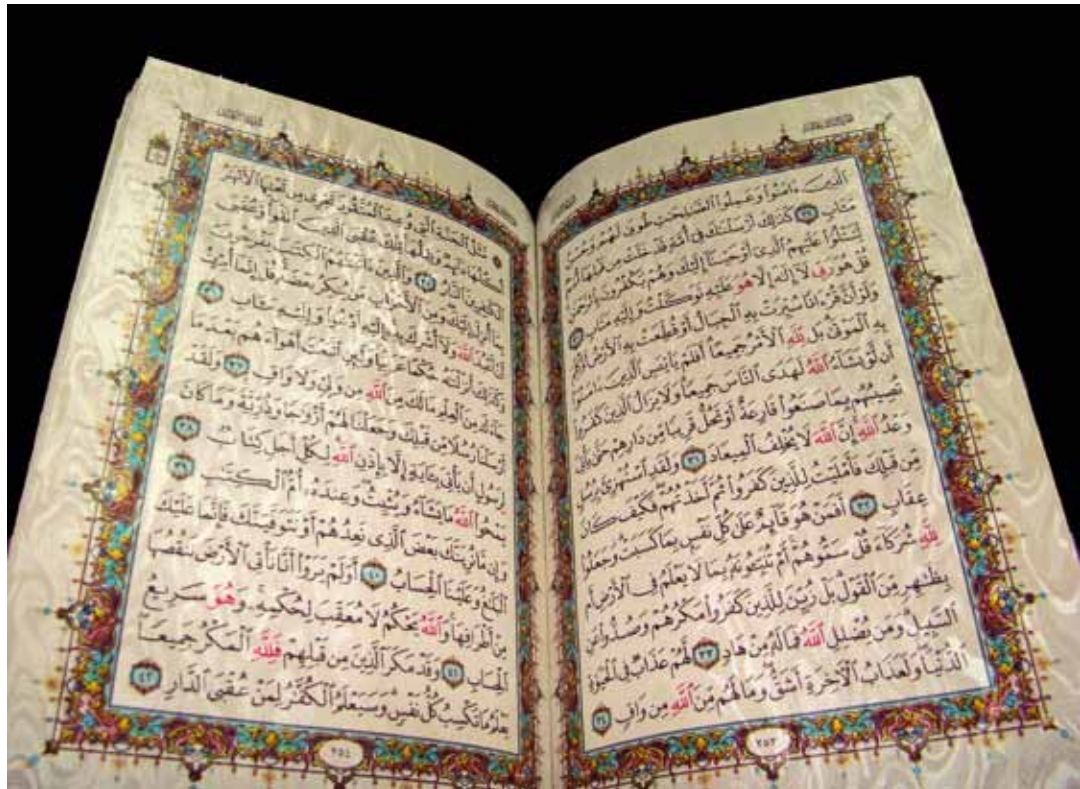 الَّذِينَ ءَامَنُوا وَعَمِلُوا الصَّٰلِحَٰتِ طُوبَىٰ لَهُمْ وَحُسْنُ
مَـَٔابٍ ٢٩ كَذَٰلِكَ أَرْسَلْنَٰكَ فِي أُمَّةٍ قَدْ خَلَتْ مِن قَبْلِهَا أُمَمٌ
لِّتَتْلُوَا عَلَيْهِمُ الَّذِي أَوْحَيْنَا إِلَيْكَ وَهُمْ يَكْفُرُونَ بِالرَّحْمَٰنِ
قُلْ هُوَ رَبِّي لَا إِلَٰهَ إِلَّا هُوَ عَلَيْهِ تَوَكَّلْتُ وَإِلَيْهِ مَتَابِ ٣٠
وَلَوْ أَنَّ قُرْءَانًا سُيِّرَتْ بِهِ الْجِبَالُ أَوْ قُطِّعَتْ بِهِ الْأَرْضُ أَوْ كُلِّمَ
بِهِ الْمَوْتَىٰ بَل لِّلَّهِ الْأَمْرُ جَمِيعًا أَفَلَمْ يَا۟يْـَٔسِ الَّذِينَ ءَامَنُوا
أَن لَّوْ يَشَاءُ اللَّهُ لَهَدَى النَّاسَ جَمِيعًا وَلَا يَزَالُ الَّذِينَ كَفَرُوا
تُصِيبُهُم بِمَا صَنَعُوا قَارِعَةٌ أَوْ تَحُلُّ قَرِيبًا مِّن دَارِهِمْ حَتَّىٰ يَأْتِيَ
وَعْدُ اللَّهِ إِنَّ اللَّهَ لَا يُخْلِفُ الْمِيعَادَ ٣١ وَلَقَدِ اسْتُهْزِئَ بِرُسُلٍ
مِّن قَبْلِكَ فَأَمْلَيْتُ لِلَّذِينَ كَفَرُوا ثُمَّ أَخَذْتُهُمْ فَكَيْفَ كَانَ
عِقَابِ ٣٢ أَفَمَنْ هُوَ قَائِمٌ عَلَىٰ كُلِّ نَفْسٍ بِمَا كَسَبَتْ وَجَعَلُوا
لِلَّهِ شُرَكَاءَ قُلْ سَمُّوهُمْ أَمْ تُنَبِّـُٔونَهُ بِمَا لَا يَعْلَمُ فِي الْأَرْضِ أَم
بِظَٰهِرٍ مِّنَ الْقَوْلِ بَلْ زُيِّنَ لِلَّذِينَ كَفَرُوا مَكْرُهُمْ وَصُدُّوا عَنِ
السَّبِيلِ وَمَن يُضْلِلِ اللَّهُ فَمَا لَهُ مِنْ هَادٍ ٣٣ لَّهُمْ عَذَابٌ فِي الْحَيَوٰةِ
الدُّنْيَا وَلَعَذَابُ الْآخِرَةِ أَشَقُّ وَمَا لَهُم مِّنَ اللَّهِ مِن وَاقٍ ٣٤
٢٥٣
مَّثَلُ الْجَنَّةِ الَّتِي وُعِدَ الْمُتَّقُونَ تَجْرِي مِن تَحْتِهَا الْأَنْهَٰرُ
أُكُلُهَا دَائِمٌ وَظِلُّهَا تِلْكَ عُقْبَى الَّذِينَ اتَّقَوا وَّعُقْبَى
الْكَٰفِرِينَ النَّارُ ٣٥ وَالَّذِينَ ءَاتَيْنَٰهُمُ الْكِتَٰبَ يَفْرَحُونَ
بِمَا أُنزِلَ إِلَيْكَ وَمِنَ الْأَحْزَابِ مَن يُنكِرُ بَعْضَهُ قُلْ إِنَّمَا أُمِرْتُ
أَنْ أَعْبُدَ اللَّهَ وَلَا أُشْرِكَ بِهِ إِلَيْهِ أَدْعُوا وَإِلَيْهِ مَـَٔابِ ٣٦
وَكَذَٰلِكَ أَنزَلْنَٰهُ حُكْمًا عَرَبِيًّا وَلَئِنِ اتَّبَعْتَ أَهْوَاءَهُم بَعْدَ مَا
جَاءَكَ مِنَ الْعِلْمِ مَا لَكَ مِنَ اللَّهِ مِن وَلِيٍّ وَلَا وَاقٍ ٣٧ وَلَقَدْ
أَرْسَلْنَا رُسُلًا مِّن قَبْلِكَ وَجَعَلْنَا لَهُمْ أَزْوَٰجًا وَذُرِّيَّةً وَمَا كَانَ
لِرَسُولٍ أَن يَأْتِيَ بِـَٔايَةٍ إِلَّا بِإِذْنِ اللَّهِ لِكُلِّ أَجَلٍ كِتَابٌ ٣٨
يَمْحُوا اللَّهُ مَا يَشَاءُ وَيُثْبِتُ وَعِندَهُ أُمُّ الْكِتَٰبِ ٣٩
وَإِن مَّا نُرِيَنَّكَ بَعْضَ الَّذِي نَعِدُهُمْ أَوْ نَتَوَفَّيَنَّكَ فَإِنَّمَا عَلَيْكَ
الْبَلَٰغُ وَعَلَيْنَا الْحِسَابُ ٤٠ أَوَلَمْ يَرَوْا أَنَّا نَأْتِي الْأَرْضَ نَنقُصُهَا
مِنْ أَطْرَافِهَا وَاللَّهُ يَحْكُمُ لَا مُعَقِّبَ لِحُكْمِهِ وَهُوَ سَرِيعُ
الْحِسَابِ ٤١ وَقَدْ مَكَرَ الَّذِينَ مِن قَبْلِهِمْ فَلِلَّهِ الْمَكْرُ جَمِيعًا
يَعْلَمُ مَا تَكْسِبُ كُلُّ نَفْسٍ وَسَيَعْلَمُ الْكُفَّٰرُ لِمَنْ عُقْبَى الدَّارِ ٤٢
٢٥٤